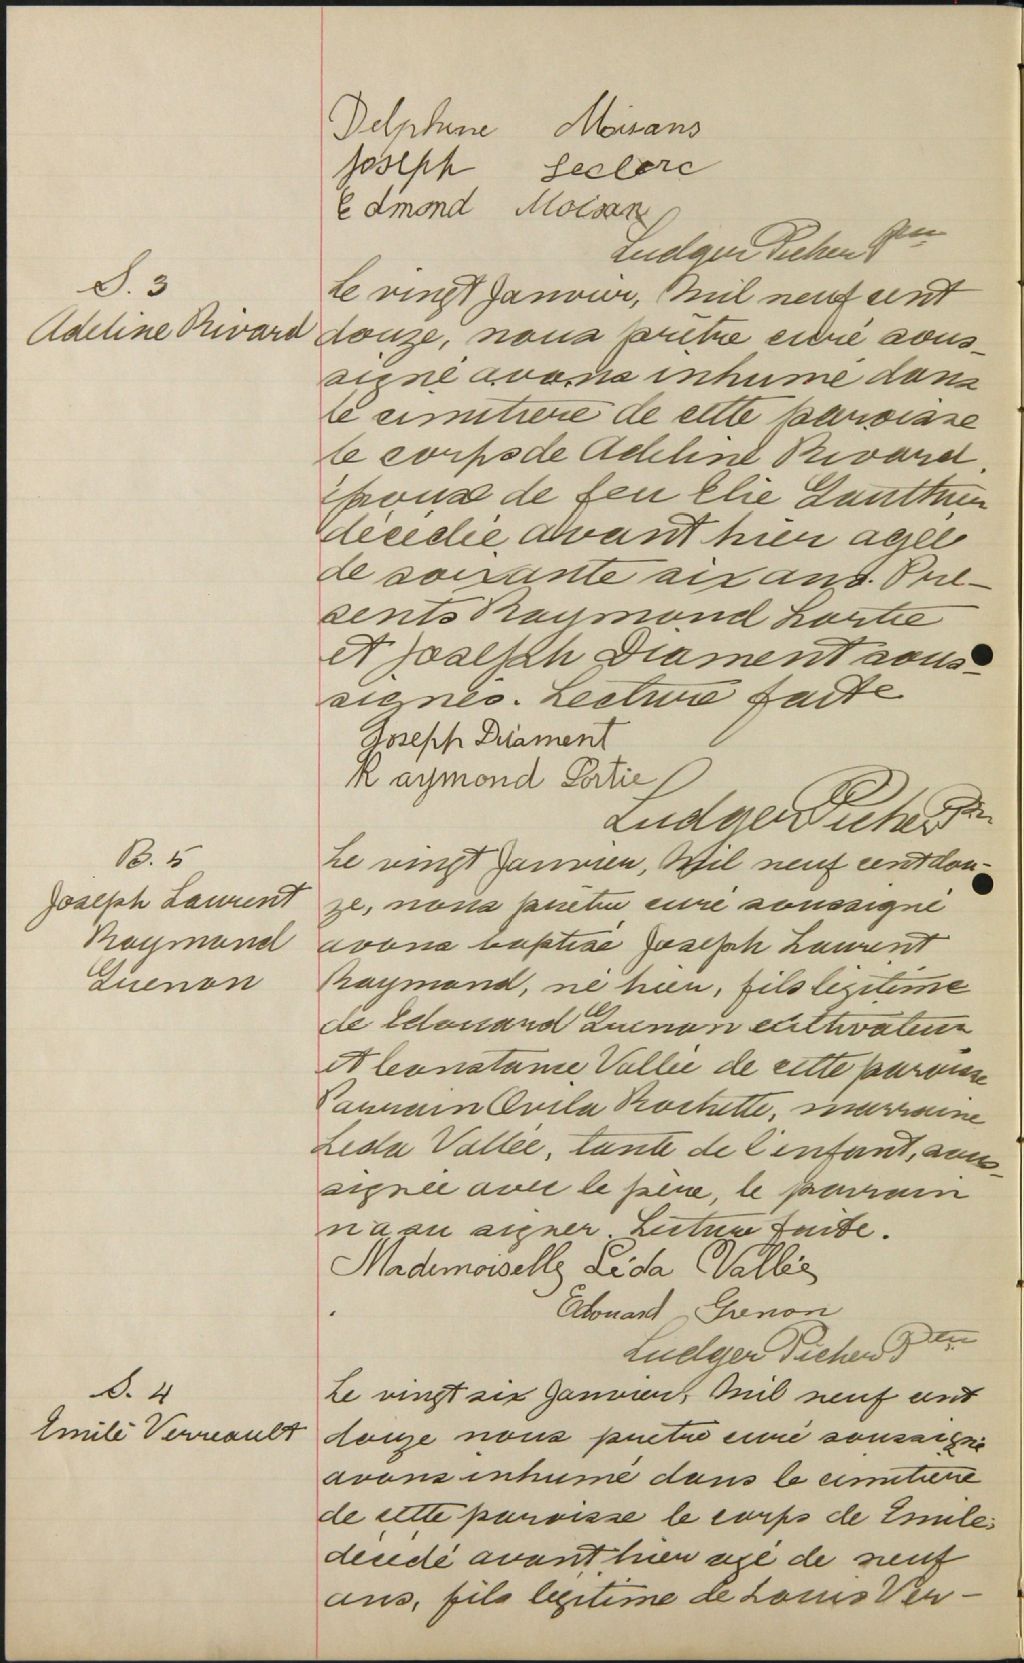 Delphine Moisans
Joseph Leclerc
Edmond Moisan
Ludger Picher Ptre
S. 3
Adeline Rivard
Le vingt Janvier, Mil neuf cent
douze, nous prêtre curé sous-
signé avons inhumé dans
le cimetière de cette paroisse
le corps de Adeline Rivard
épouse de feu Elie Gauthier
décédée avant hier agée
de soixante six ans. Pré-
sents Raymond Lortie
et Joseph Diament sous-
signés. Lecture faite
Joseph Diament
Raymond Lortie
Ludger Picher Ptre
B. 5
Joseph Laurent
Raymond
Guenon
Le vingt Janvier, Mil neuf cent dou-
ze, nous prêtre curé soussigné
avons baptisé Joseph Laurent
Raymond, né hier, fils légitime
de Edouard Guenon cultivateur
et Constance Vallée de cette paroisse
Parrain Ovila Rochette, marraine
Leda Vallée, tante de l'enfant, sous-
signée avec le père, le parrain
n'a su signer. Lecture faite.
Mademoiselle Léda Vallée
Edouard Grenon
Ludger Picher Ptre
S. 4
Emile Verreault
Le vingt six Janvier, Mil neuf cent
douze nous prêtre curé soussigné
avons inhumé dans le cimetière
de cette paroisse le corps de Emile
décédé avant hier agé de neuf
ans, fils légitime de Louis Ver-